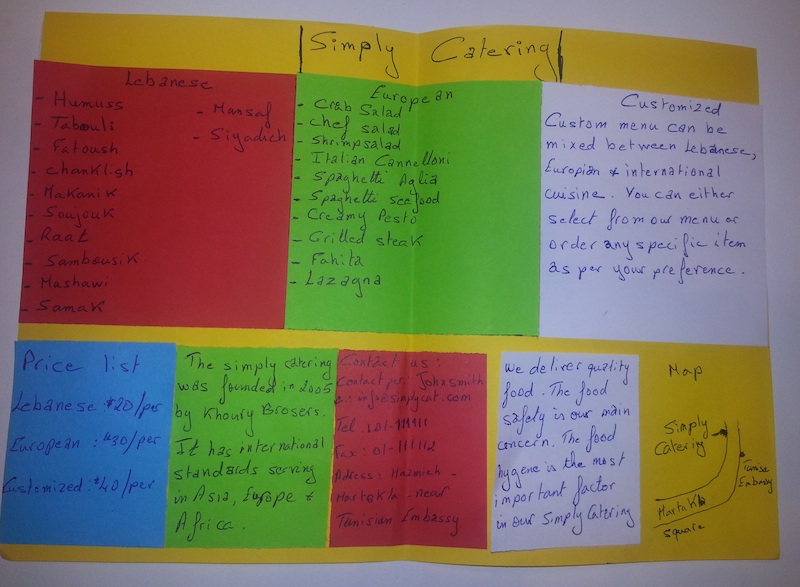 Simply Catering
Lebanese
- Humuss
- Tabouli
- Fatoush
- chanklish
- Makanik
- Soujouk
- Raat
- Sambousik
- Mashawi
- Samak
- Mansaf
- Siyadieh
European
- Crab Salad
- chef salad
- Shrimpsalad
- Italian Cannelloni
- Spaghetti Aglia
- Spaghetti seefood
- Creamy Pesto
- Grilled steak
- Fahita
- Lazagna
Customized
Custom menu can be
mixed between Lebanese,
Europian & international
cuisine. You can either
select from our menu or
order any specific item
as per your preference.
Price list
Lebanese: $20/per
European : $30/per
Customized: $40/per
The simply catering
was founded in 2005
by Khoury Brosers.
It has international
standards serving
in Asia, Europe &
Africa.
Contact us:
Contact per: Johnsmith
e.: info@simplycat.com
Tel : 01-111111
Fax : 01-111112
Adress: Hazmieh -
Martakla - near
Tunisian Embassy
we deliver quality
food. The food
safety is our main
concern. The food
hygene is the most
important factor
in our Simply Catering
Map
Simply
Catering
Tunise
Embassy
Martakla
square